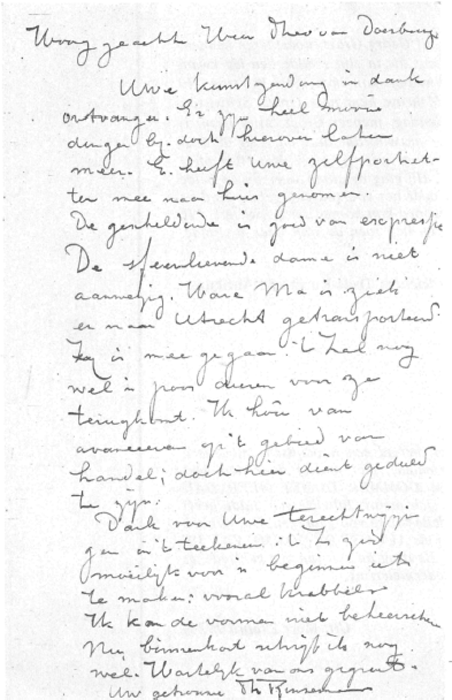 geacht Heer Theo van Doesburg
Uwe kunstzending in dank
ontvangen. Er zijn heel mooie
dingen bij, doch hierover later
meer. E. heeft Uwe zelfportret-
ten mee naar huis genomen.
De geschilderde is goed van expressie
De sfeerlievende dame is niet
aanwezig. Hare Ma is ziek
en naar Utrecht getransporteerd
Zij is mee gegaan. 't Zal nog
wel 'n poos duren voor ze
terugkomt. Ik hou van
avanceeren op 't gebied van
handel; doch hier dient geduld
te zijn.
Dank voor Uwe terechtwijzin
gen in 't teekenen. 't Is zeer
moeilijk voor 'n beginner iets
te maken; vooral krabbels.
Ik kan de vormen niet beheerschen
Nu binnenkort schrijf ik nog
wel. Hartelijk van ons gegroet.
Uw getrouwe Th Rinsema